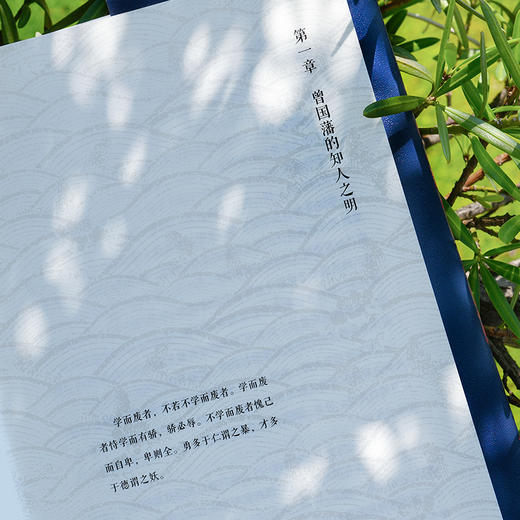 第一章 曾国藩的知人之明
学而废者，不若不学而废者。学而废
者恃学而有骄，骄必辱。不学而废者愧己
而自卑，卑则全。勇多于仁谓之暴，才多
于德谓之妖。